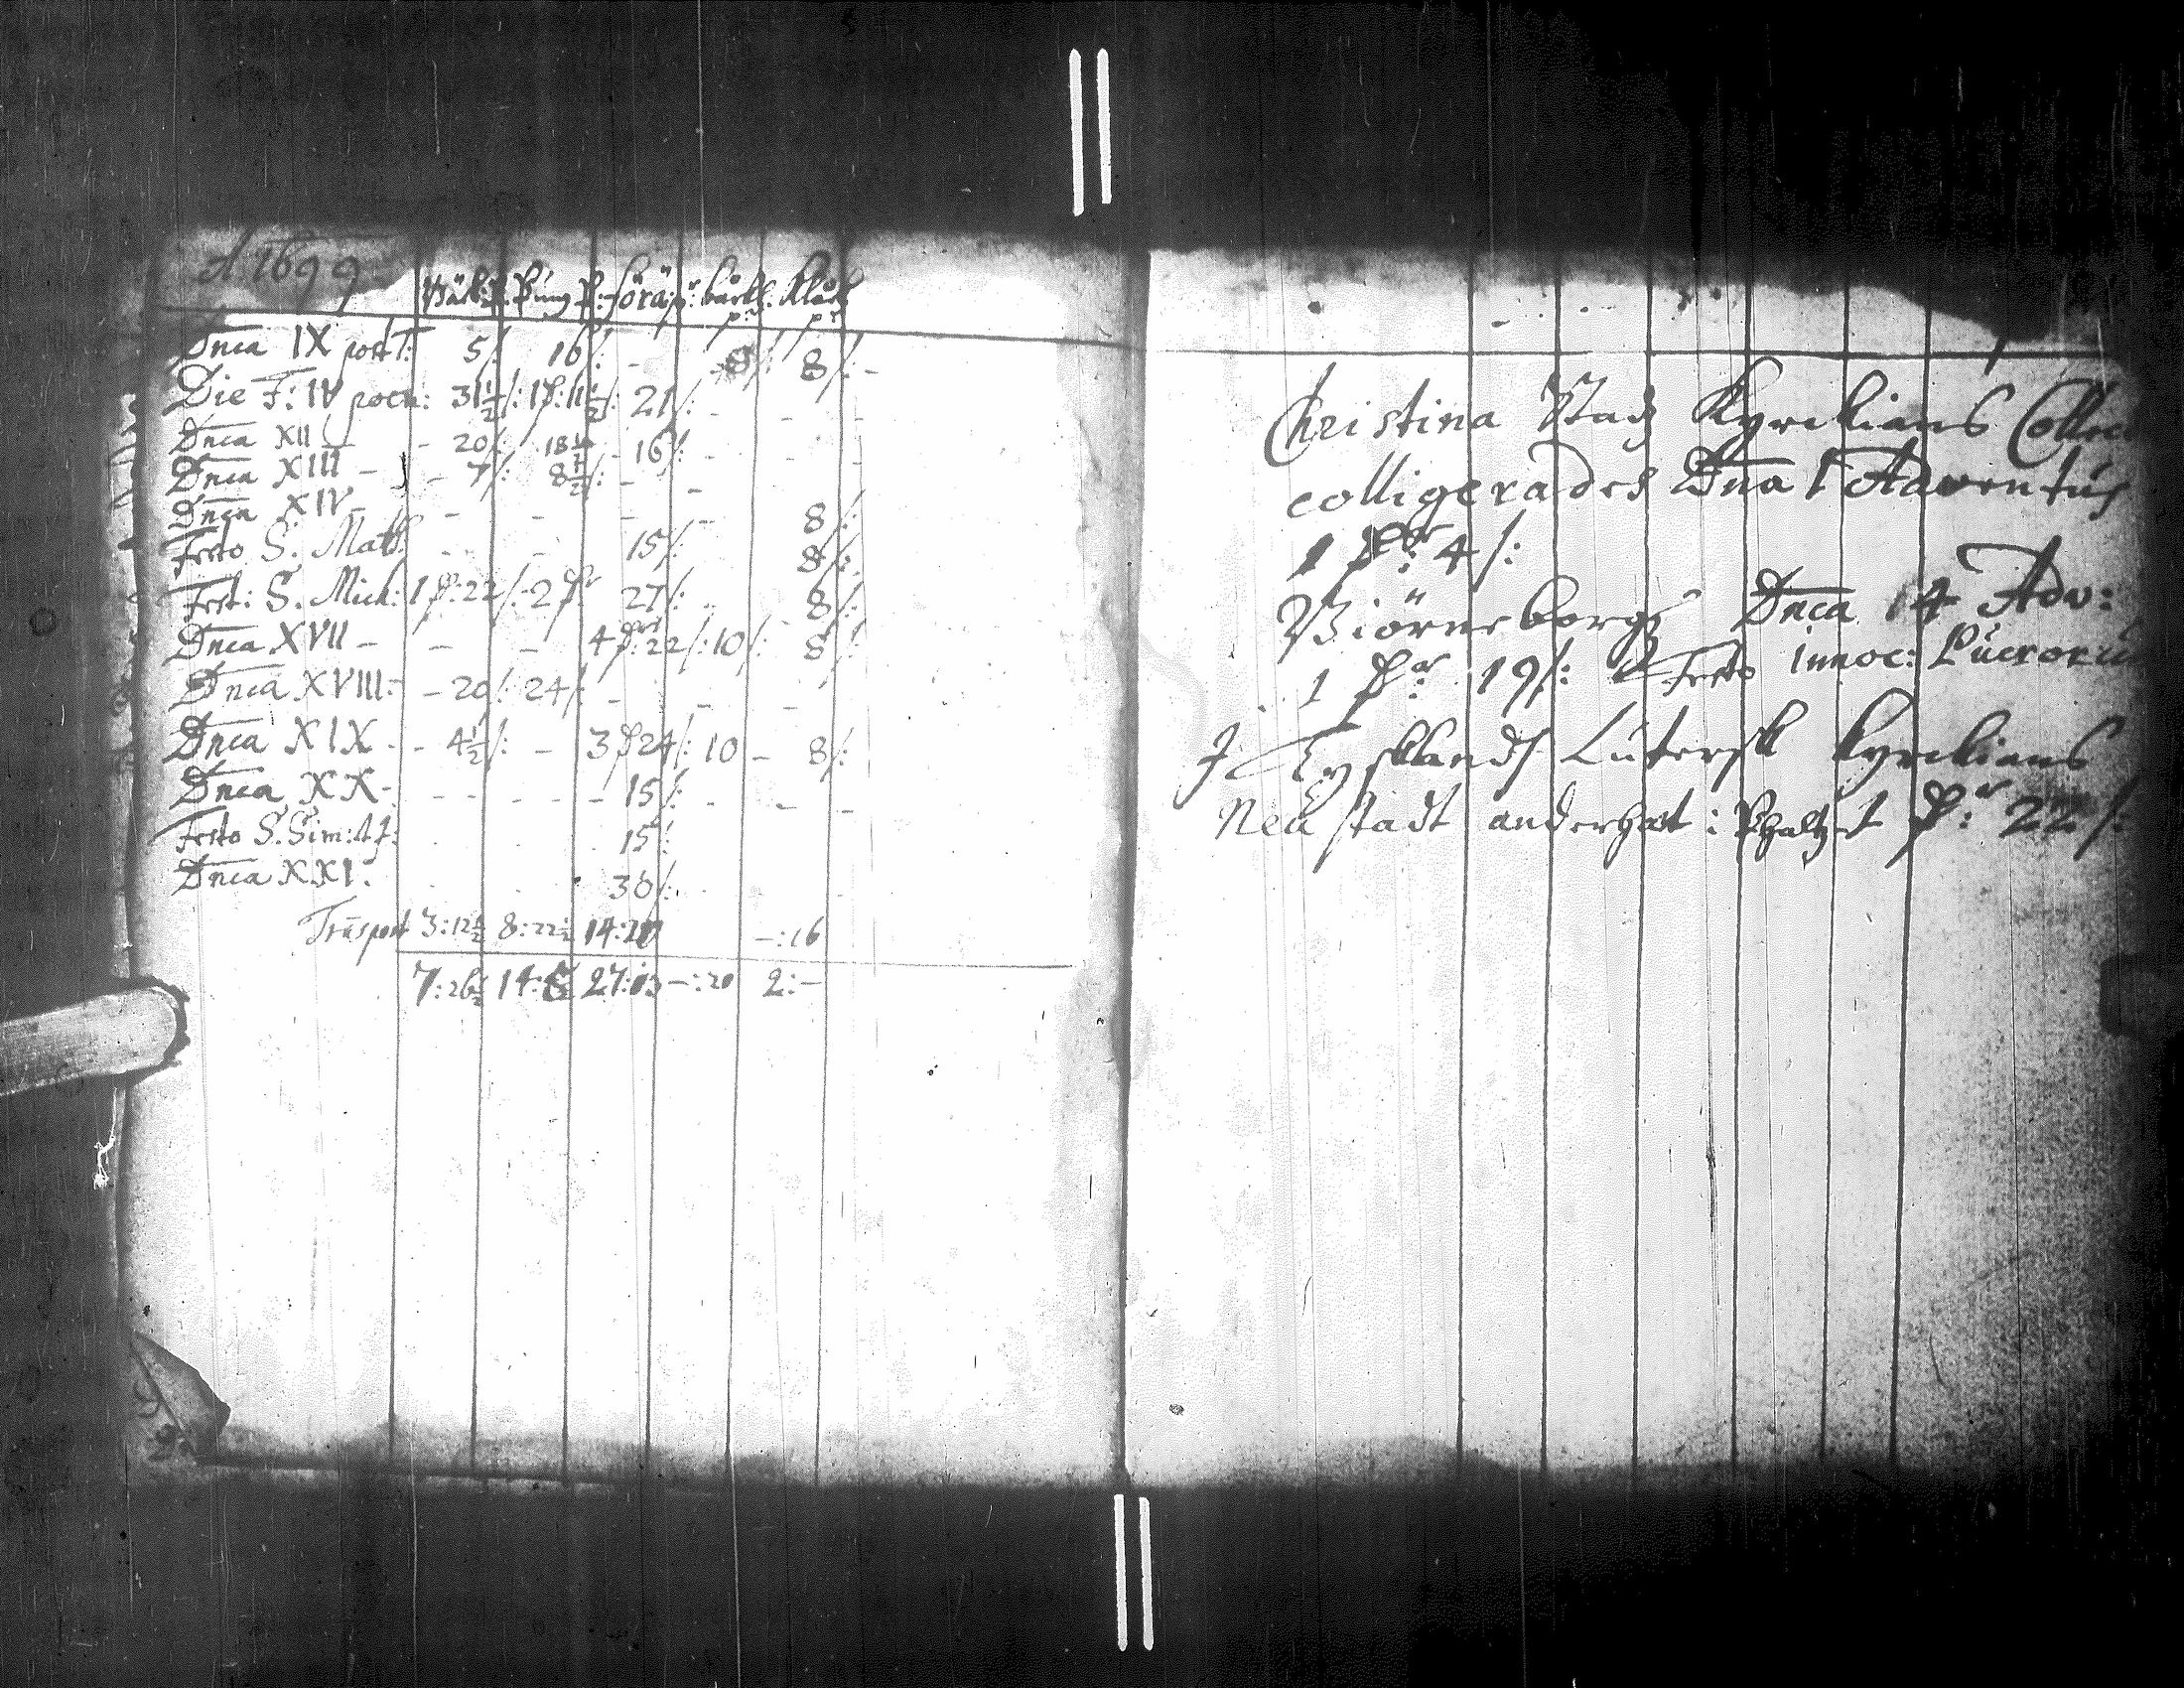 A 1699
Bäck: P. Pung P: förä: pr bårkl. Klåck
pr pr
Dnca IX post T: 5/: 16/: - 8/: 8/: -
Die F: IV poen: 31½/: 1P: 11½/: 21/: - - -
Dnca XII - 20/: 18½ - 16/: - - -
Dnca XIII - - 7/: 8½/: - -
Dnca XIV - - - - - 8/:
Festo S. Matt. - - 15/: 8/:
Fest: S. Mich: 1 P: 22/: 2 P: 27/: - 8/:
Dnca XVII - - - 4 P: 22/: 10/: 8/:
Dnca XVIII: - 20/: 24/: - - -
Dnca XIX - - 4½/: - 3 P 24/: 10 - 8/:
Dnca XX - - - - - - 15/: - - -
Festo S. Sim: & J: 15/:
Dnca XXI. - - - 30/: -
Trāsport 3:12½ 8:22½ 14:20 -:16
7:26½ 14:½ 27:13 -:20 2:-
Christina Stadz Kyrckians Collec
colligerades Dnca 1 Adventus
1 Pr: 4/:
Biörneborgz Dnca 4 Adv:
1 Pr: 19/: & Festo innoc: Puerorū
J Tysklandz Lutersk kyrckians
Neüstadt anderhart i Phaltz et Pr: 22/: